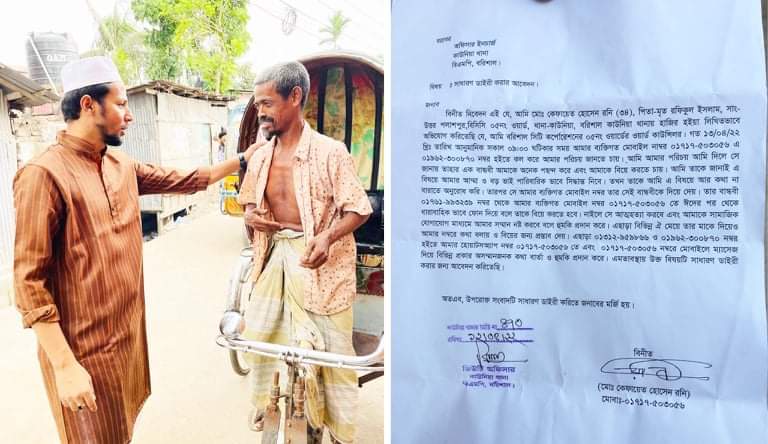 গাজী
বরাবর
অফিসার ইনচার্জ
কাউনিয়া থানা
বিএমপি, বরিশাল।
বিষয় : সাধারণ ডাইরী করার আবেদন।
জনাব
বিনীত নিবেদন এই যে, আমি মোঃ কেফায়েত হোসেন রনি (৩৪), পিতা-মৃত রফিকুল ইসলাম, সাং-
উত্তর পলাশপুর,বিসিসি ০৫নং ওয়ার্ড, থানা-কাউনিয়া, বরিশাল কাউনিয়া থানায় হাজির হইয়া লিখিতভাবে
অভিযোগ করিতেছি যে, আমি বরিশাল সিটি কর্পোরেশন ০৫নং ওয়ার্ডের ওয়ার্ড কাউন্সিলার। গত ১৩/০৪/২২
খ্রিঃ তারিখ আনুমানিক সকাল ০৯:০০ ঘটিকার সময় আমার ব্যক্তিগত মোবাইল নাম্বার ০১৭১৭-৫০৩০৫৬ এ
০১৯৬২-৩০০৬৭০ নম্বর হইতে কল করে আমার পরিচয় জানতে চায়। আমি আমার পরিচয় আমি দিলে সে
জানায় তাহার এক বান্ধবী আমাকে অনেক পছন্দ করে এবং আমাকে বিয়ে করতে চায়। আমি তাকে জানাই এ
বিষয়ে আমার আম্মা ও বড় ভাই পারিবারিক ভাবে সিদ্ধান্ত নিবে। তখন তাকে আমি এ বিষয়ে আর কথা না
বারাতে অনুরোধ করি। তারপর সে আমার ব্যক্তিগত মোবাইল নম্বর তার সেই বান্ধবীকে দিয়ে দেয়। তার বান্ধবী
০১৭৬১-৯৯৩২৩৯ নম্বর থেকে আমার ব্যক্তিগত মোবাইল নম্বর ০১৭১৭-৫০৩০৫৬ তে ঈদের পর থেকে
ধারাবাহিক ভাবে ফোন দিয়ে বলে তাকে বিয়ে করতে হবে। নাইলে সে আত্মহত্যা করবে এবং আমাকে সামাজিক
যোগাযোগ মাধ্যমে আমার সম্মান নষ্ট করবে বলে হুমকি প্রদান করে। এছাড়া বিভিন্ন ঐ মেয়ে তার মাকে দিয়েও
আমার নম্বরে কথা বলায় ও বিয়ের জন্য প্রস্তাব দেয়। এছাড়া ০১৩১২-৯৫৯৮৬৬ ও ০১৯৬২-৩০০৬৭০ নম্বর
হইতে আমার হোয়াটসঅ্যাপ নম্বর ০১৭১৭-৫০৩০৫৬ তে এবং ০১৭১৭-৫০৩০৫৬ নম্বরে মোবাইলে ম্যাসেজ
দিয়ে বিভিন্ন প্রকার অসম্মানজনক কথা বার্তা ও হুমকি প্রদান করে। এমতাবস্থায় উক্ত বিষয়টি সাধারণ ডাইরী
করার জন্য আবেদন করিতেছি।
অতএব, উপরোক্ত সংবাদটি সাধারণ ডাইরী করিতে জনাবের মর্জি হয়।
কাউনিয়া থানার ডাইরি নং
তারিখ
ডিউটি অফিসার
কাউনিয়া থানা
বিএমপি, বরিশাল।
বিনীত
(মোঃ কেফায়েত হোসেন রনি)
মোবাঃ-০১৭১৭-৫০৩০৫৬